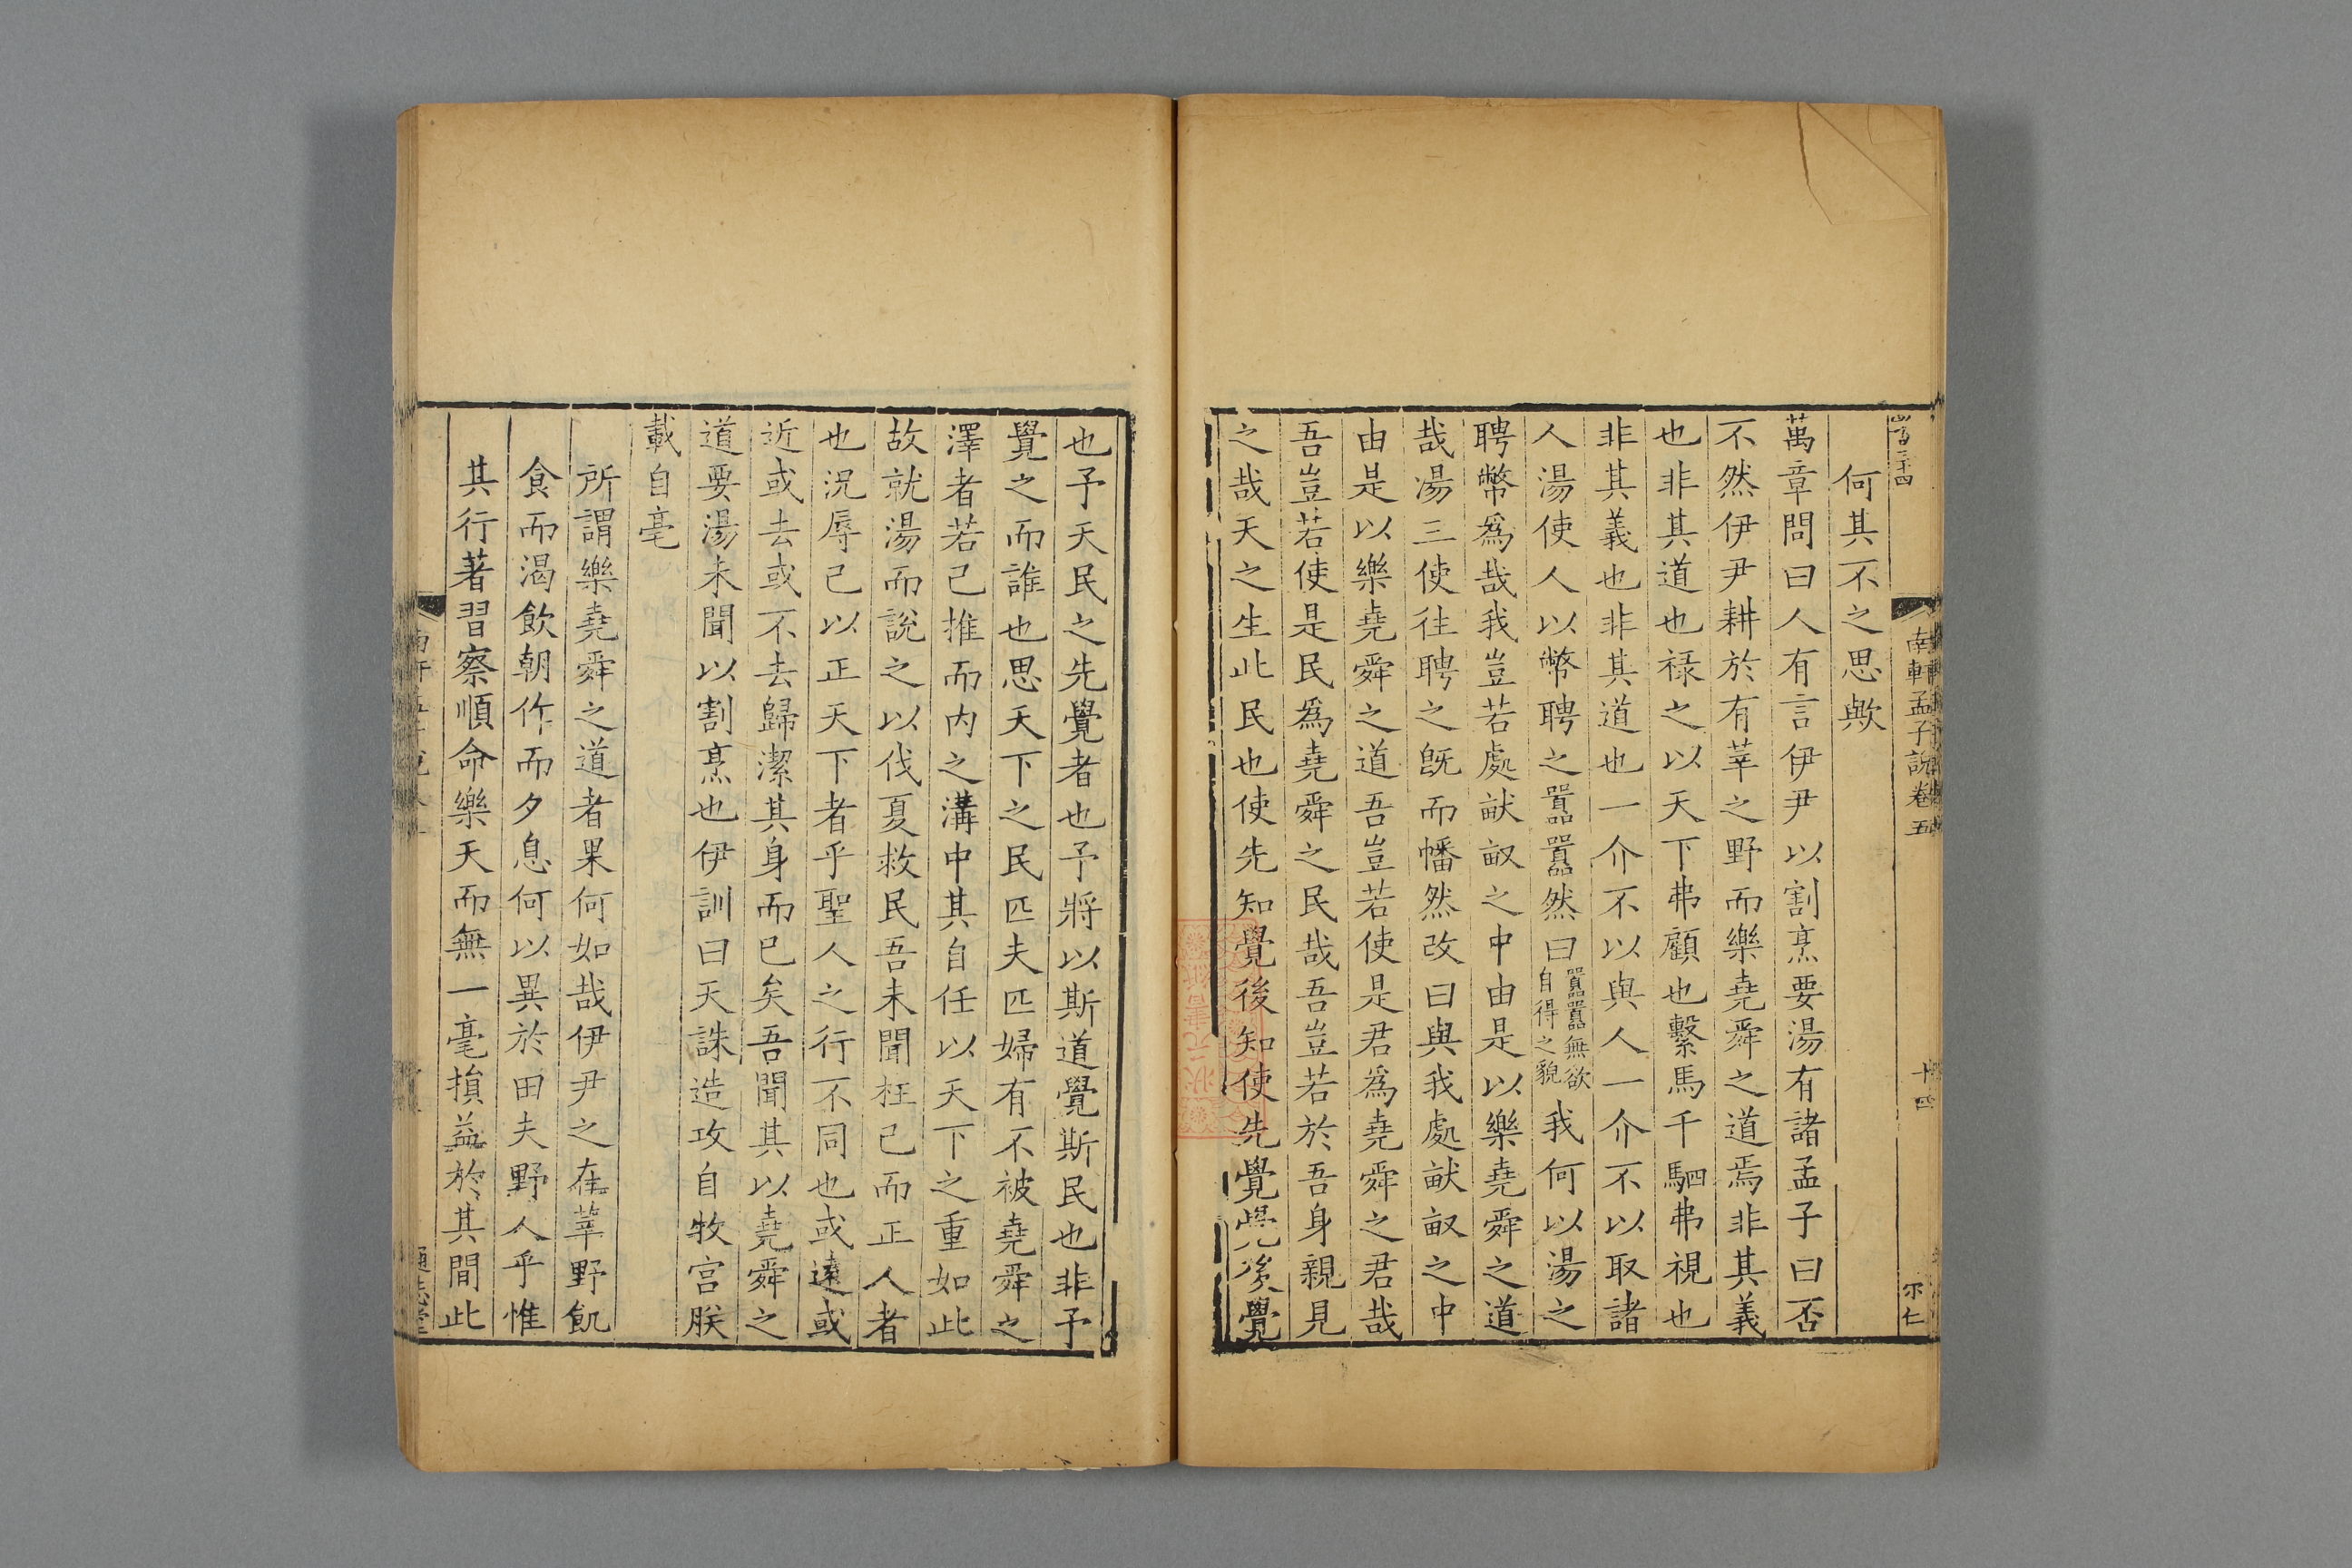 南軒孟子說卷五
十四
何其不之思歟
萬章問曰人有言伊尹以割烹要湯有諸孟子曰否
不然伊尹耕於有莘之野而樂堯舜之道焉非其義
也非其道也祿之以天下弗顧也繫馬千駟弗視也
非其義也非其道也一介不以與人一介不以取諸
人湯使人以幣聘之囂囂然曰囂囂無欲自得之貌我何以湯之
聘幣爲哉我豈若處畎畝之中由是以樂堯舜之道
哉湯三使往聘之旣而幡然改曰與我處畎畝之中
由是以樂堯舜之道吾豈若使是君爲堯舜之君哉
吾豈若使是民爲堯舜之民哉吾豈若於吾身親見
之哉天之生此民也使先知覺後知使先覺覺後覺
也予天民之先覺者也予將以斯道覺斯民也非予
覺之而誰也思天下之民匹夫匹婦有不被堯舜之
澤者若己推而內之溝中其自任以天下之重如此
故就湯而說之以伐夏救民吾未聞枉己而正人者
也況辱己以正天下者乎聖人之行不同也或遠或
近或去或不去歸潔其身而已矣吾聞其以堯舜之
道要湯未聞以割烹也伊訓曰天誅造攻自牧宮朕
載自亳
所謂樂堯舜之道者果何如哉伊尹之在莘野飢
食而渴飲朝作而夕息何以異於田夫野人乎惟
其行著習察順命樂天而無一毫損益於其間此
通志堂